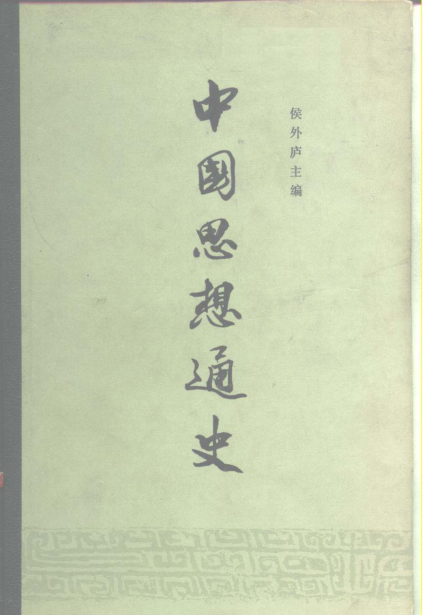 侯外庐主编
中国思想通史